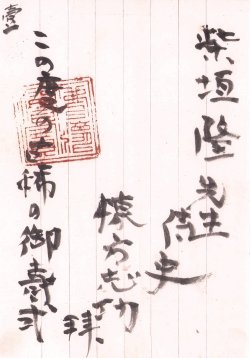 柴垣隆先生
侍史
懐方志功
拝
この度の古稀の御壽式
壹